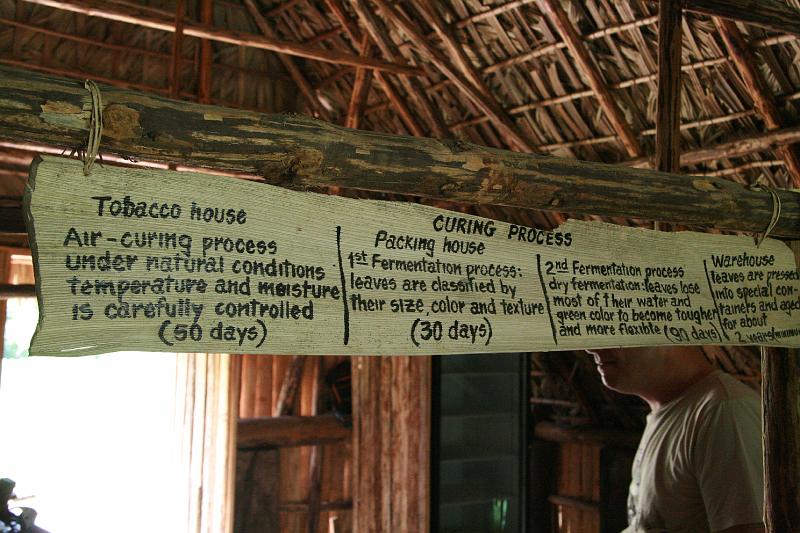 CURING PROCESS
Tobacco house
Air-curing process
under natural conditions
temperature and moisture
is carefully controlled
(50 days)
Packing house
1st Fermentation process:
leaves are classified by
their size, color and texture
(30 days)
2nd Fermentation process
dry fermentation: leaves lose
most of their water and
green color to become tougher
and more flexible (90 days)
Warehouse
leaves are pressed
into special con-
tainers and aged
for about
2 years/minimum